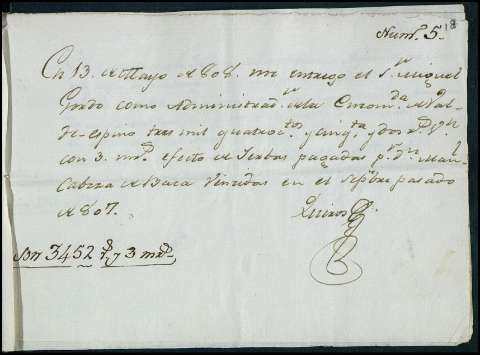 Num.º 5.
18
En 13. de Mayo de 808. me entregó el S.r Miguel
Grado como Administrad.r de la Encom.da de Val-
de-espino tres mil quatroc.tos y cinq.ta y dos r.s V.n
con 3. mrs efecto de Yerbas pagadas p.r d.n Man.l
Cabeza de Baca Vencidas en el Sepbre pasado
de 807.
Quiros
Son 3452 r.s y 3 mrs.